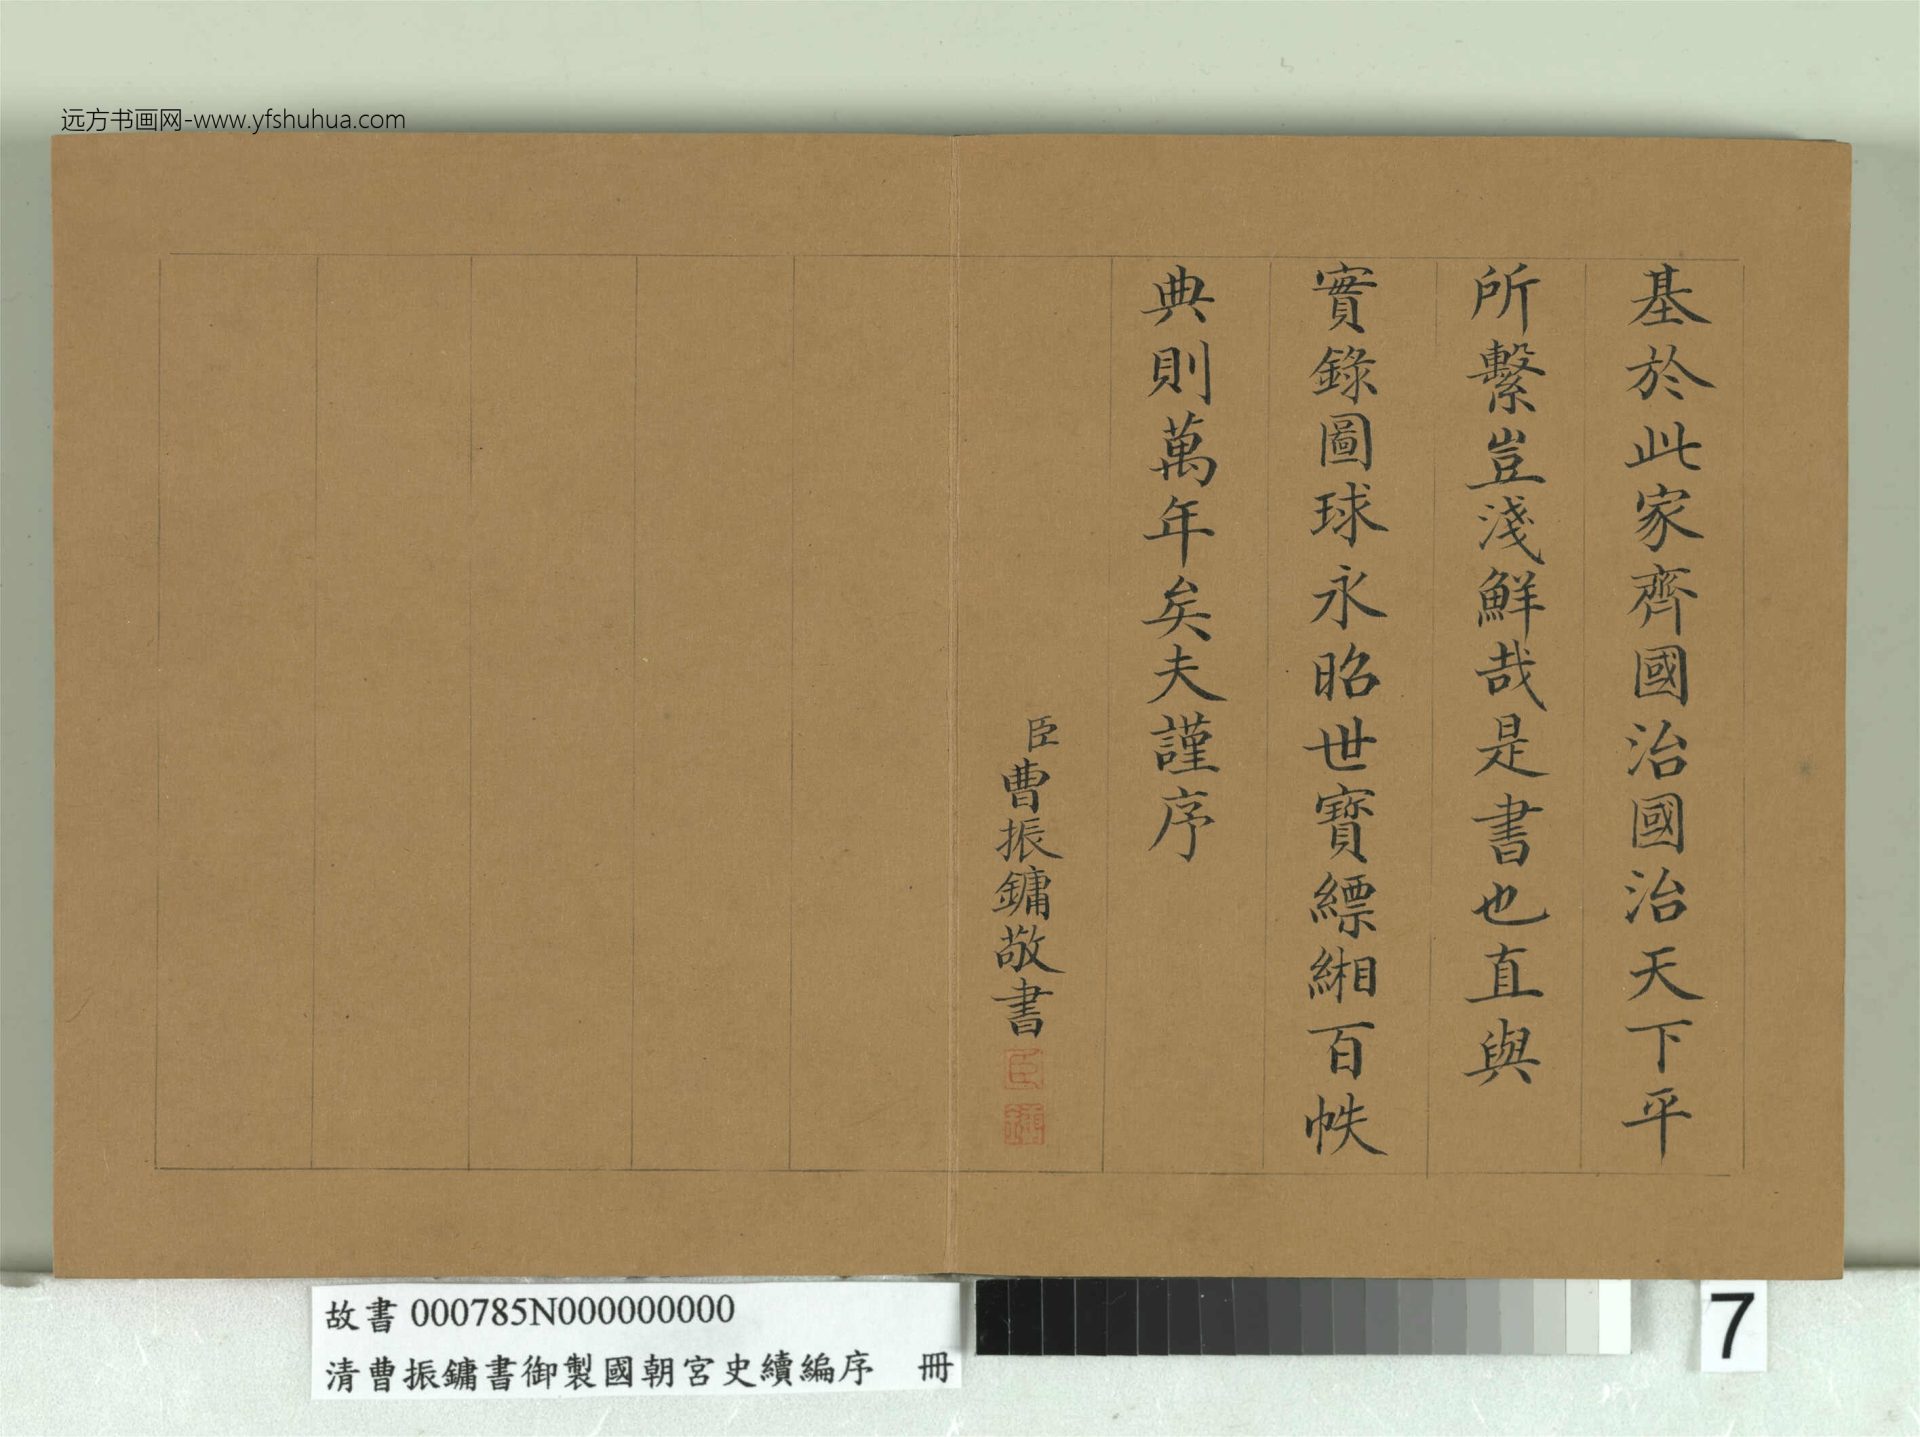 远方书画网-www.yfshuhua.com
基於此家齊國治國治天下平
所繫豈淺鮮哉是書也直與
實錄圖球永昭世寶縹緗百帙
典則萬年矣夫謹序
臣曹振鏞敬書
臣
故書 000785N000000000
清曹振鏞書御製國朝宮史續編序 冊
7